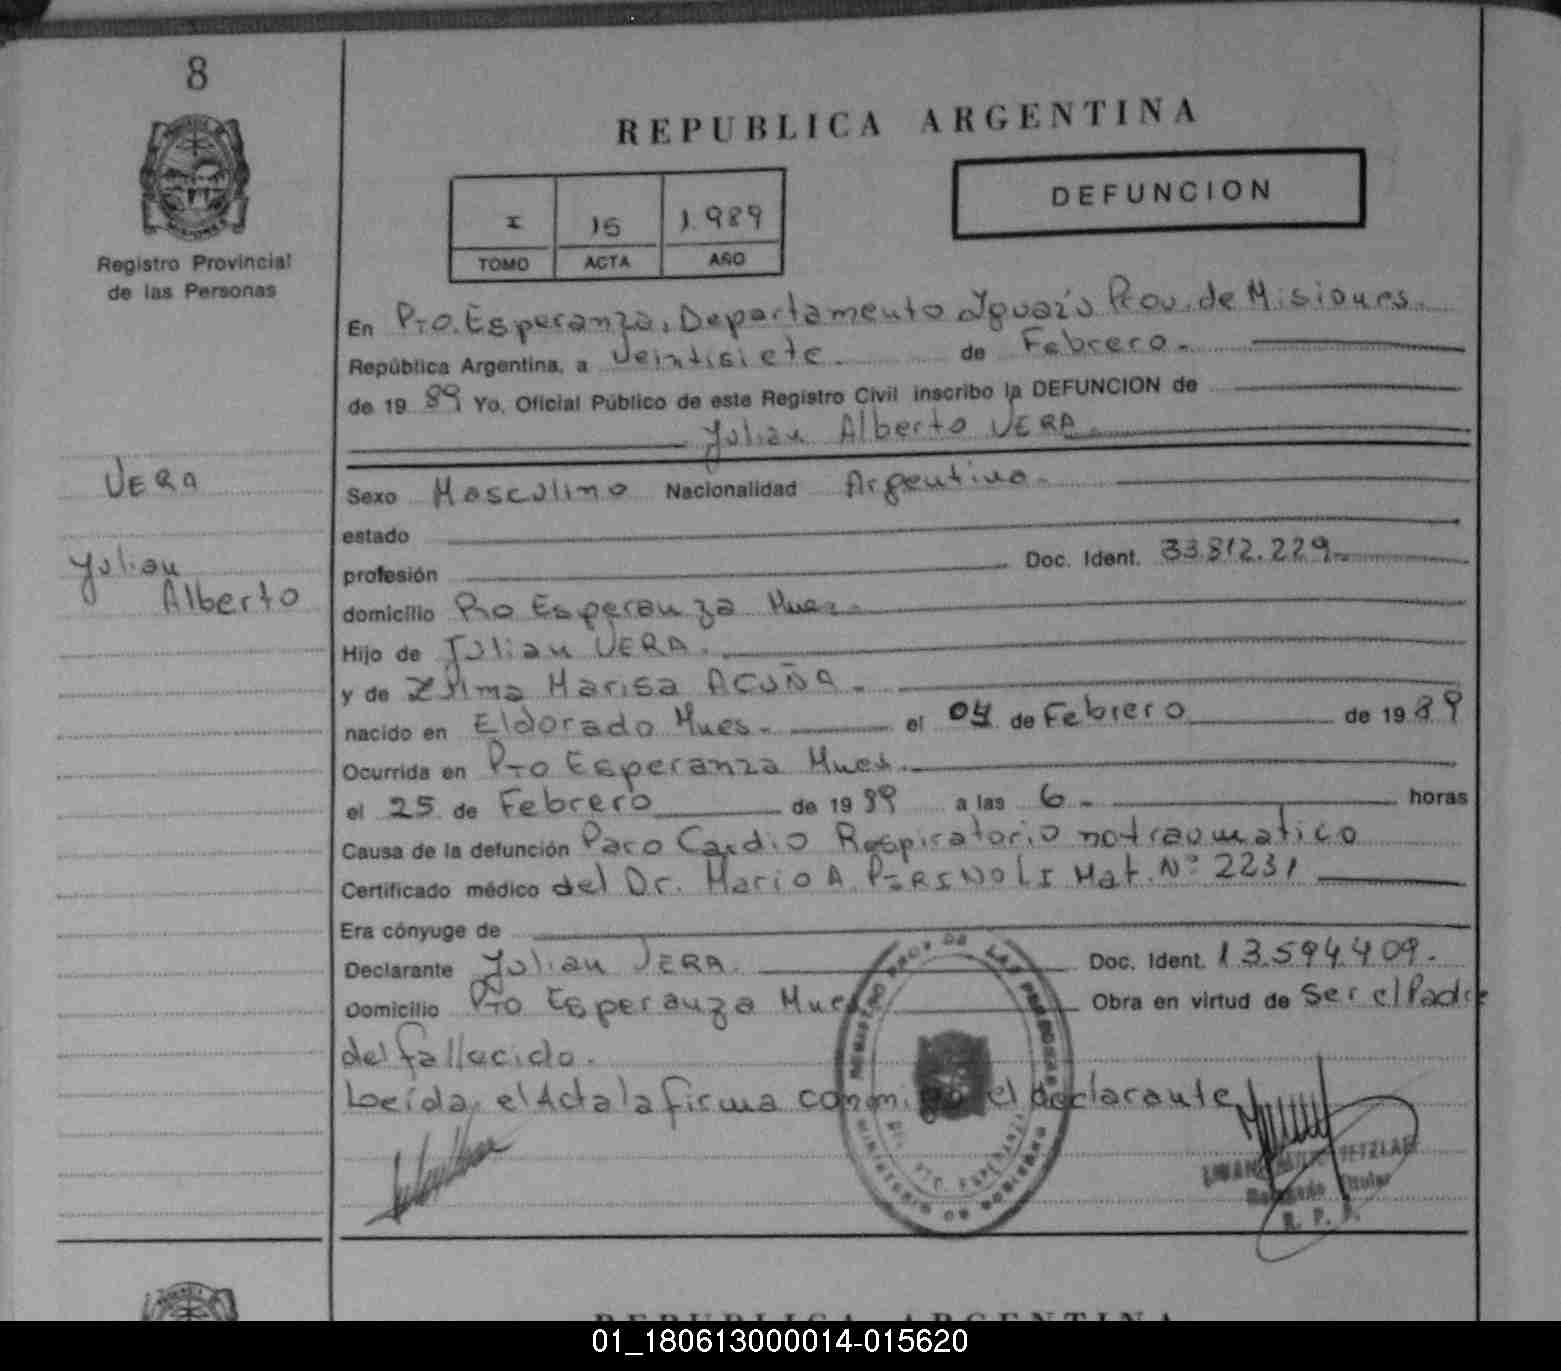 8
Registro Provincial
de las Personas
REPUBLICA ARGENTINA
DEFUNCION
I 15 1.989
TOMO ACTA AÑO
En Pto. Esperanza, Departamento Iguazú Prov. de Misiones.
República Argentina, a veintisiete. de Febrero.
de 19 89 Yo, Oficial Público de este Registro Civil inscribo la DEFUNCION de
Julian Alberto VERA.
VERA
Julian
Alberto
Sexo Masculino Nacionalidad Argentina.
estado
profesión Doc. Ident. 33.812.229.
domicilio Pto Esperanza Mnes.
Hijo de Julian VERA.
y de Zilma Marisa ACUÑA.
nacido en Eldorado Mnes. el 04 de Febrero de 19 89
Ocurrida en Pto Esperanza Mnes.
el 25 de Febrero de 19 89 a las 6. horas
Causa de la defunción Paro Cardio Respiratorio no traumatico
Certificado médico del Dr. Mario A. Mat. Nº 2231
Era cónyuge de
Declarante Julian VERA. Doc. Ident. 13.594.409.
Domicilio Pto Esperanza Mnes Obra en virtud de Ser el Padre
del fallecido.
Leída el Acta la firma conmigo el declarante
REGISTRO PROV. DE LAS PERSONAS
MINISTERIO DE GOBIERNO
PTO. ESPERANZA
Titular
R. P. P.
REPUBLICA ARGENTINA
01_180613000014-015620